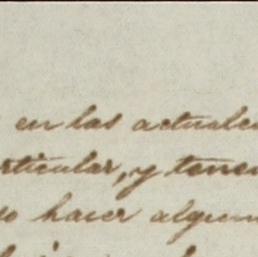 en las actuale
rticular, y tene
o hacer algun